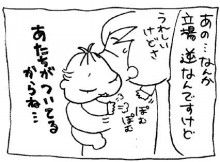 あの…なんか
立場 逆なんですけど
うれしい
けどさ
ぽむ
ぽむ
あたちが
ついてる
からね…